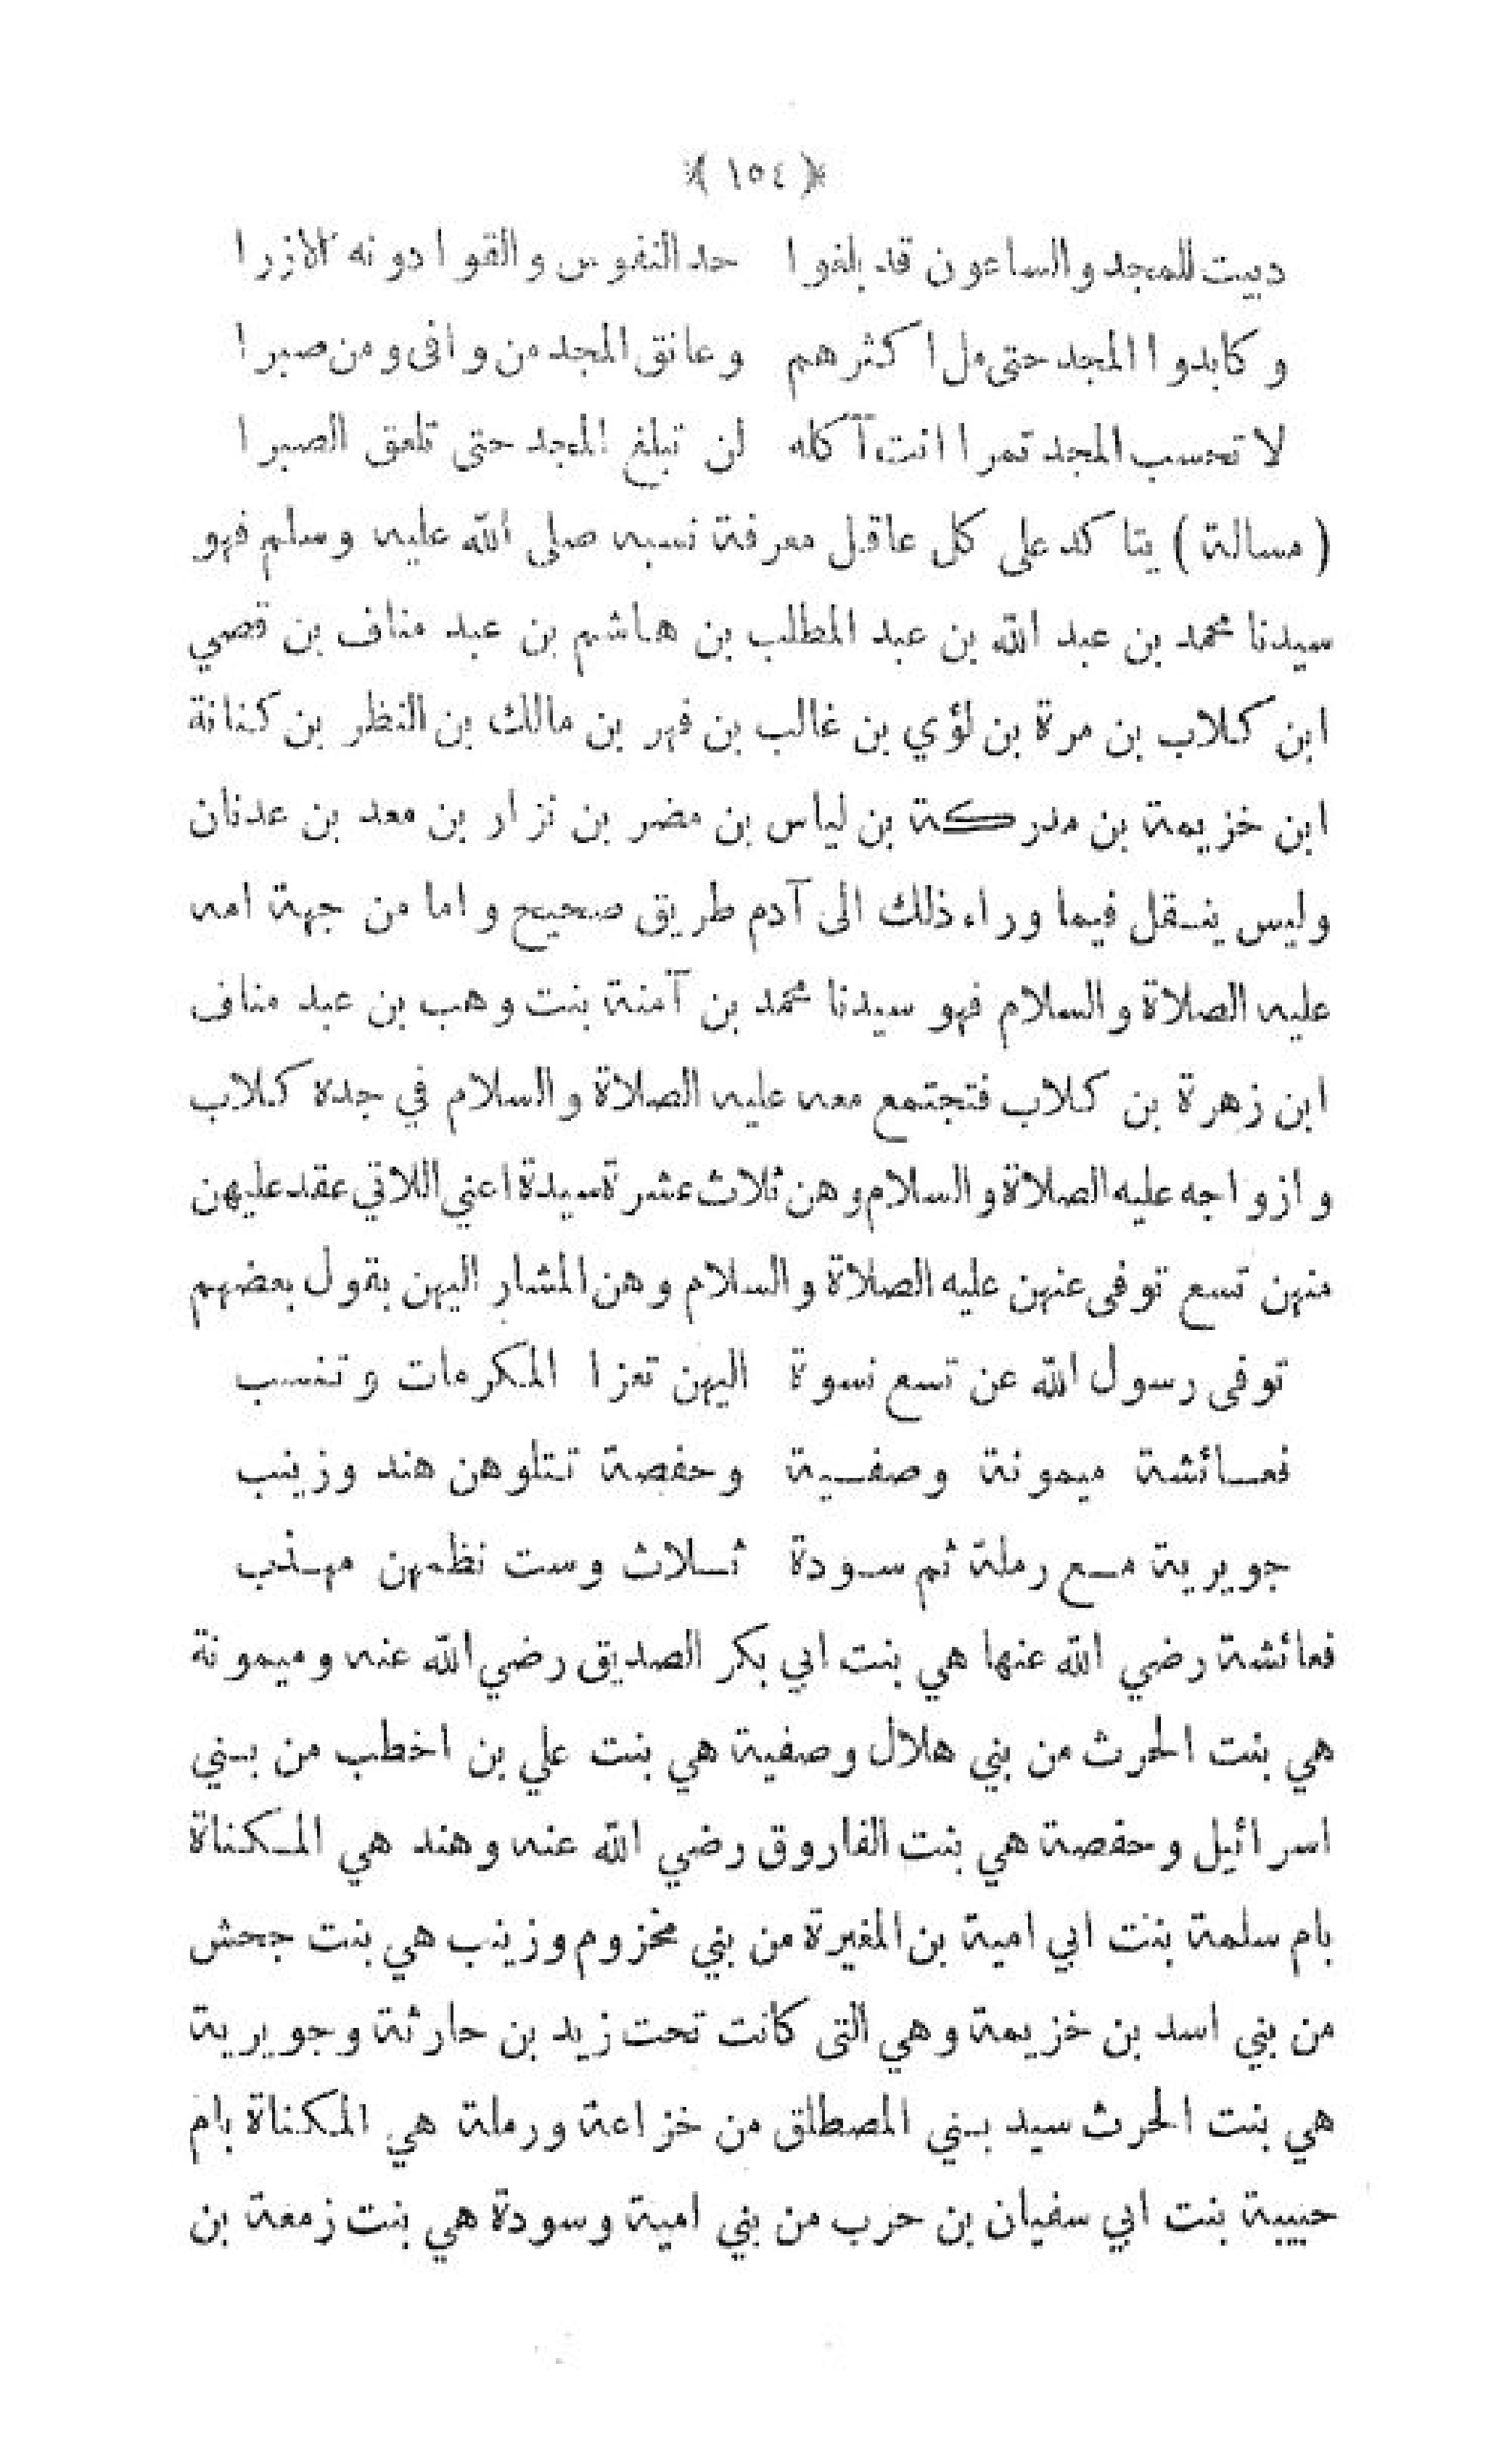 ﴿ ١٥٤ ﴾
دبيت للمجد والساعون قد بلغوا حد النفوس والقوا دونه الازرا
وكابدوا المجد حتى مل اكثرهم وعانق المجد من وافى ومن صبرا
لا تحسب المجد تمرا انت آكله لن تبلغ المجد حتى تلعق الصبرا
( مسالة ) يتاكد على كل عاقل معرفة نسبه صلى الله عليه وسلم فهو
سيدنا محمد بن عبد الله بن عبد المطلب بن هاشم بن عبد مناف بن قصي
ابن كلاب بن مرة بن لؤي بن غالب بن فهر بن مالك بن النظر بن كنانة
ابن خزيمة بن مدركة بن لياس بن مضر بن نزار بن معد بن عدنان
وليس ينقل فيما وراء ذلك الى آدم طريق صحيح واما من جهة امه
عليه الصلاة والسلام فهو سيدنا محمد بن آمنة بنت وهب بن عبد مناف
ابن زهرة بن كلاب فتجتمع معه عليه الصلاة والسلام في جده كلاب
وازواجه عليه الصلاة والسلام وهن ثلاث عشرة سيدة اعني اللاتي عقد عليهن
منهن تسع توفى عنهن عليه الصلاة والسلام وهن المشار اليهن بقول بعضهم
توفى رسول الله عن تسع نسوة اليهن تعزا المكرمات وتنسب
فعائشة ميمونة وصفية وحفصة تتلوهن هند وزينب
جويرية مع رملة ثم سودة ثلاث وست نظمهن مهذب
فعائشة رضي الله عنها هي بنت ابي بكر الصديق رضي الله عنه وميمونة
هي بنت الحرث من بني هلال وصفية هي بنت علي بن اخطب من بني
اسرائيل وحفصة هي بنت الفاروق رضي الله عنه وهند هي المكناة
بام سلمة بنت ابي امية بن المغيرة من بني مخزوم وزينب هي بنت جحش
من بني اسد بن خزيمة وهي التى كانت تحت زيد بن حارثة وجويرية
هي بنت الحرث سيد بني المصطلق من خزاعة ورملة هي المكناة بام
حبيبة بنت ابي سفيان بن حرب من بني امية وسودة هي بنت زمعة بن